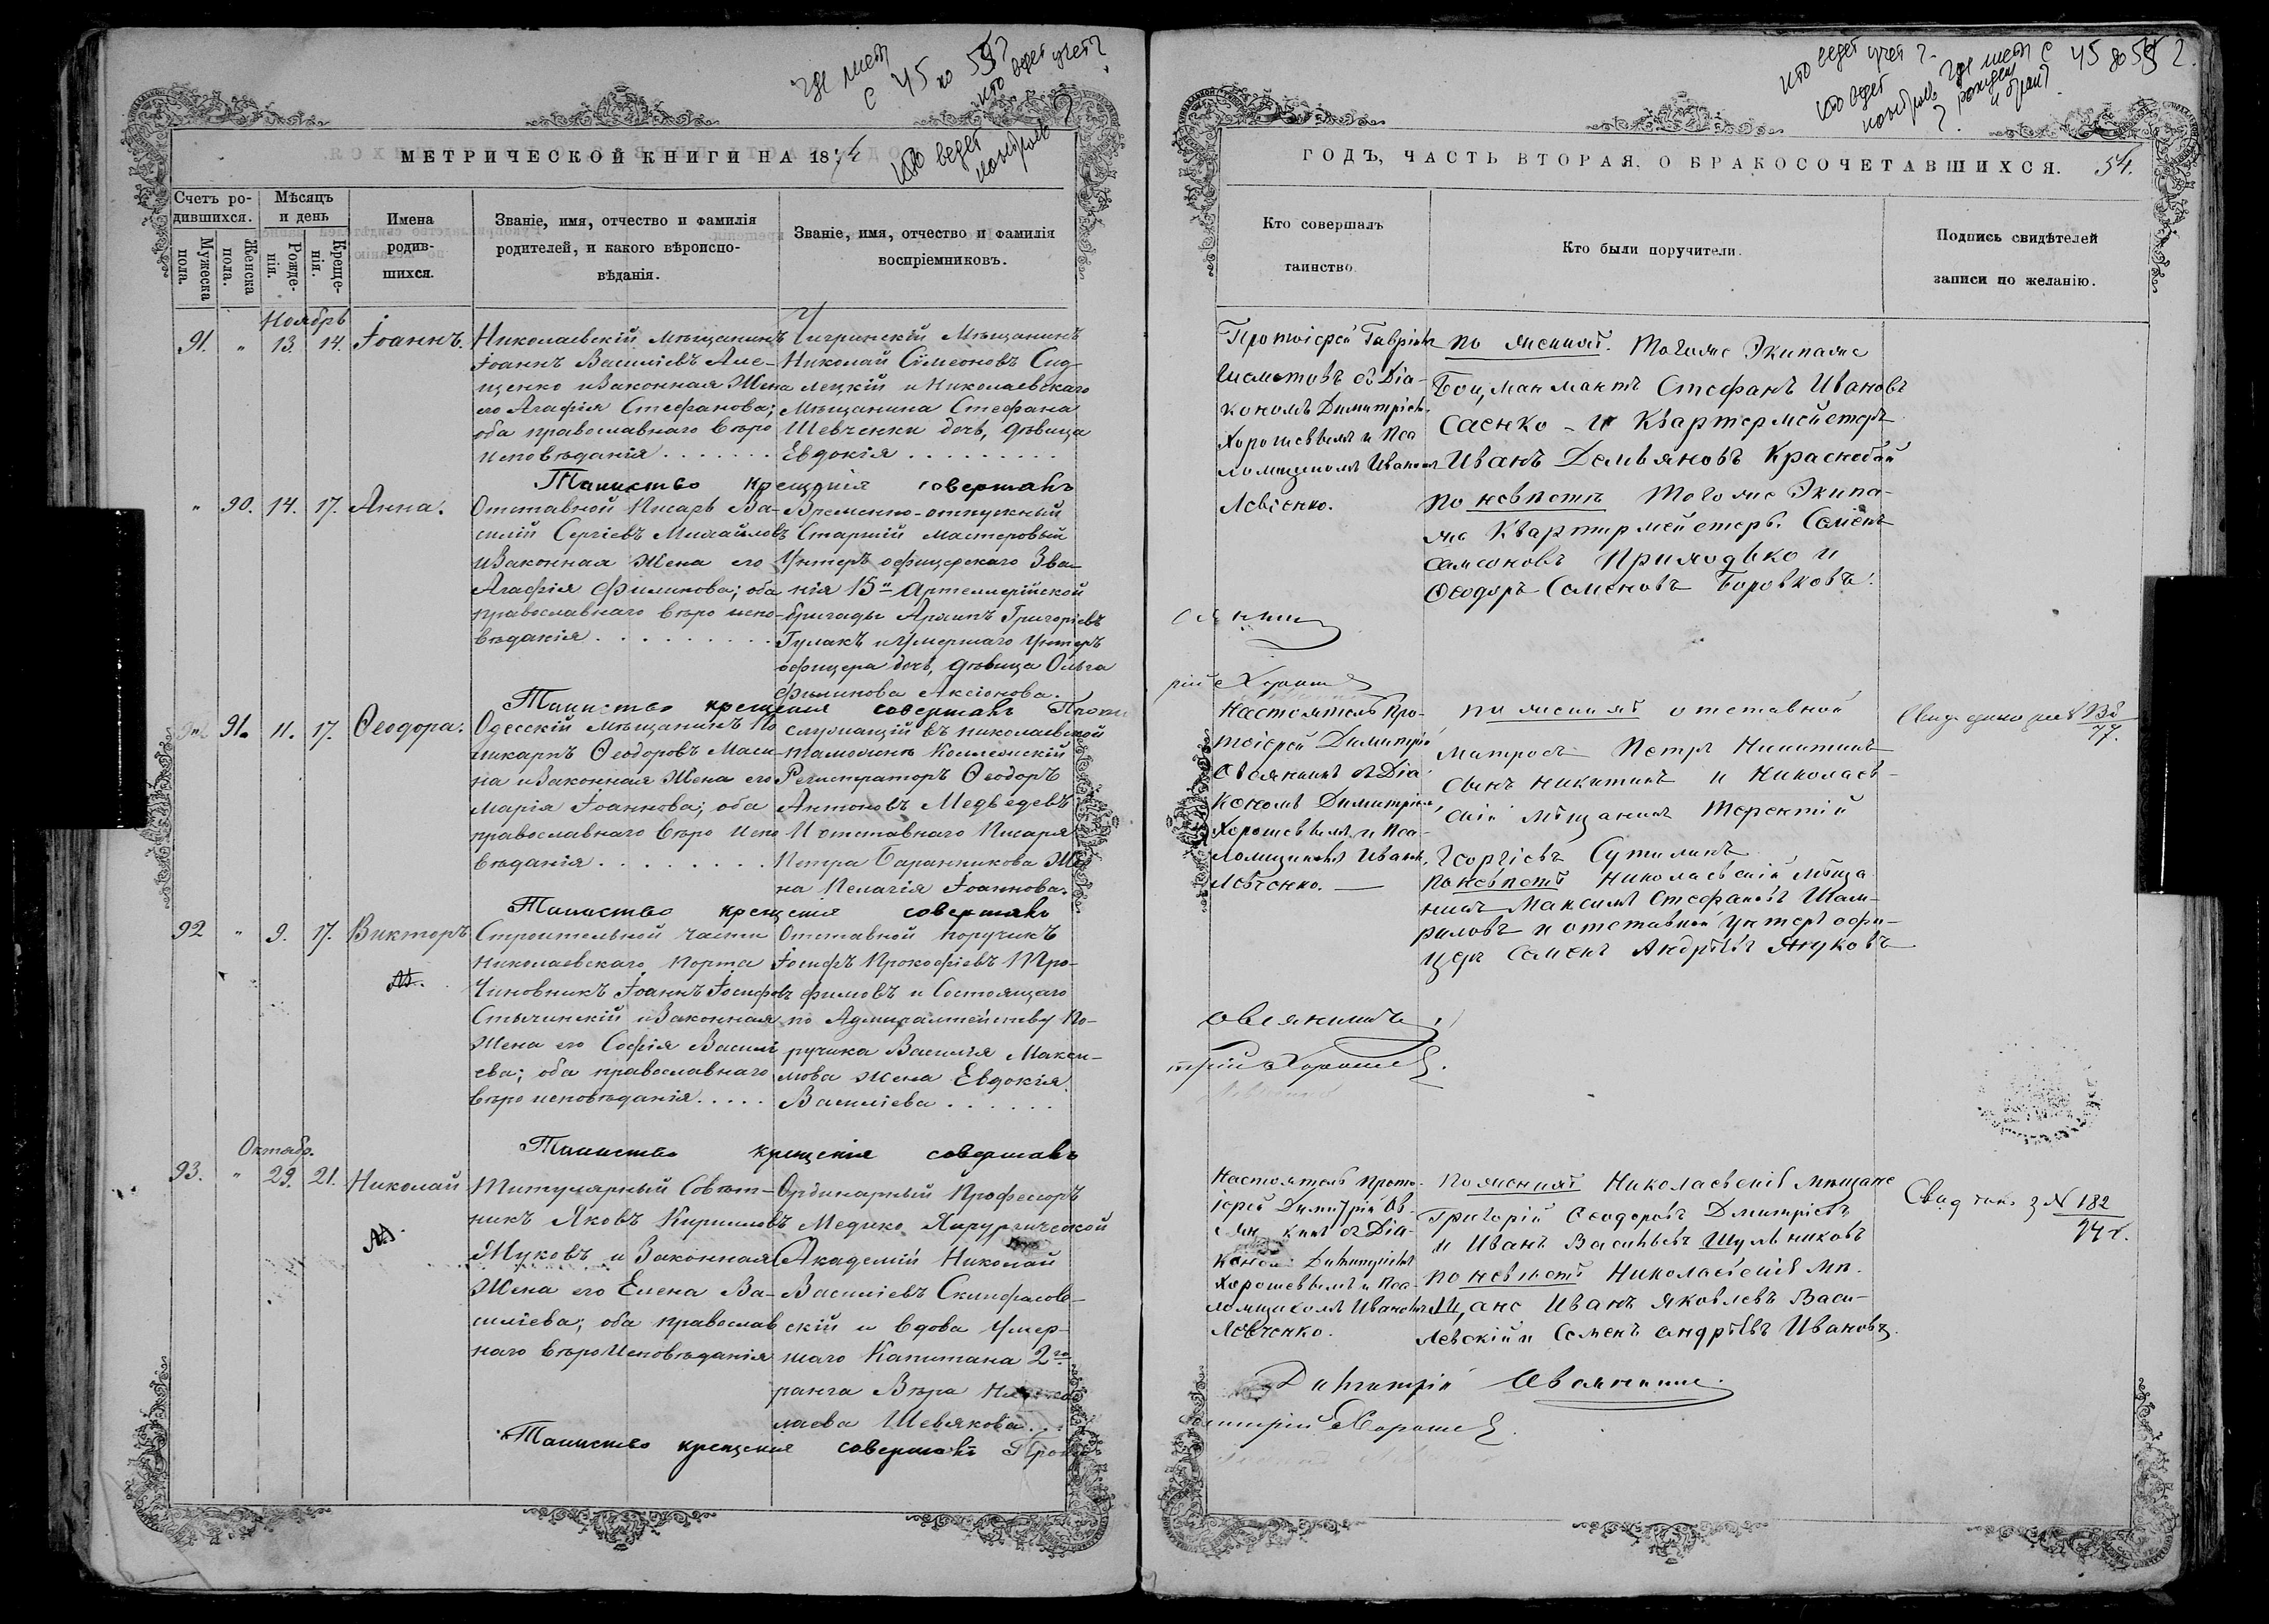 где лист
с 45 по 53?
кто ведет учет?
кто ведет
контроль ?
МЕТРИЧЕСКОЙ КНИГИ НА 1874
Счетъ ро-
дившихся.
Мужеска
пола.
Женска
пола.
Мѣсяцъ
и день
Рожде-
нія.
Креще-
нія.
Имена
родив-
шихся.
Званіе, имя, отчество и фамилія
родителей, и какого вѣроиспо-
вѣданія.
Званіе, имя, отчество и фамилія
воспріемниковъ.
Ноябрь
91. " 13. 14. Іоаннъ.
Николаевскій Мѣщанинъ
Іоаннъ Василіевъ
и Законная Жена
его Агафія Стефанова;
оба православнаго вѣро
исповѣданія . . . . . . .
Чигринскій Мѣщанинъ
Николай Сѵмеоновъ Сид-
лецкій и Николаевскаго
Мѣщанина Стефана
Шевченки дочь, дѣвица
Евдокія . . . . . . . . .
Таинство крещенія совершалъ
" 90. 14. 17. Анна.
Отставной Писарь Ва-
силій Сергіевъ Михайловъ
и Законная Жена его
Агафія Филипова; оба
православнаго вѣро испо-
вѣданія . . . . . . . . .
Временно-отпускный
Старшій мастеровый
Унтеръ офицерскаго Зва-
нія 15й Артиллерійской
бригады Архипъ Григоріевъ
Гулакъ и Умершаго Унтеръ
офицера дочь, дѣвица Ольга
Филипова Аксіонова.
Таинство крещенія совершалъ Прото
91. 11. 17. Ѳеодора.
Одесскій Мѣщанинъ По
ликарпъ Ѳеодоровъ
на и Законная Жена его
Марія Іоаннова; оба
православнаго вѣро испо
вѣданія . . . . . . . .
служащій въ николаевской
таможнѣ Коллежскій
Регистраторъ Ѳеодоръ
Антоновъ Медведевъ
И отставнаго Писаря
Петра Баранникова Же
на Пелагія Іоаннова.
Таинство крещенія совершалъ
92 " 9. 17. Викторъ
Строительной части
Николаевскаго Порта
Чиновникъ Іоаннъ Іосифовъ
Стычинскій и Законная
Жена его Софія Василі
ева; оба православнаго
вѣро исповѣданія . . . . .
Отставной поручикъ
Іосифъ Прокофіевъ Тро-
фимовъ и Состоящаго
по Адмиралтейству По-
ручика Василія Макси-
мова Жена Евдокія
Василіева . . . . . .
Таинство крещенія совершалъ
Октябр.
93. " 29. 21. Николай
Титулярный Совѣт-
никъ Яковъ Кириловъ
Жуковъ и Законная
Жена его Елена Ва-
силіева; оба православ
наго вѣро Исповѣданія
Ординарный Профессоръ
Медико Хирургической
Академіи Николай
Василіевъ Склифасов-
скій и вдова Умер-
шаго Капитана 2го
ранга Вѣра Нико
лаева Шевякова . .
Таинство крещенія совершалъ Прото
кто ведет учет ?
где лист с 45 до 53 ?
кто ведет
контроль
?
рожден
и брак?
ГОДЪ, ЧАСТЬ ВТОРАЯ. О БРАКОСОЧЕТАВШИХСЯ.
54.
Кто совершалъ
таинство.
Кто были поручители.
Подпись свидѣтелей
записи по желанію.
Протоіерей Гавріилъ
съ Діа-
кономъ Димитріемъ
Хорошевымъ и Пса
ломщикомъ Иваномъ
Левченко.
по женихѣ. Тогоже Экипажа
Боцманматъ Стефанъ Ивановъ
Саенко - и Квартермейстеръ
Иванъ Демьяновъ Краснобай
по невѣстѣ Тогоже Экипа-
жа Квартирмейстеръ Семенъ
Самсоновъ Приходько и
Ѳеодоръ Семеновъ Боровковъ.
Настоятель Про-
тоіерей Димитрій
Овсянкинъ съ Діа-
кономъ Димитріемъ
Хорошевымъ и Пса-
ломщикомъ Иваном.
Левченко. —
по женихѣ отставной
Матросъ Петръ Никитинъ
сынъ Никитинъ и Николаев-
скій мѣщанинъ Терентій
Георгіевъ Сутилинъ
По невѣстѣ Николаевскій мѣща
нинъ Максимъ Стефановъ
и отставной Унтеръ офи-
церъ Семенъ Андрѣевъ Януковъ
Овсянкинъ
трій Хорошев
Настоятель Прото-
іерей Димитрій Ов-
сян кинъ съ Діа-
коном Димитріемъ
Хорошевымъ и Пса-
ломщикомъ Иваномъ
Левченко.
По женихѣ Николаевскіе мѣщане
Григорій Ѳеодоровъ Димитріевъ
и Иванъ Васильевъ Шульниковъ
по невѣстѣ Николаевскіе мѣ-
щане Иванъ Яковлевъ Васи-
левскій и Семенъ Андрѣевъ Ивановъ.
№ 182
Димитрій Овсянкинъ.
митрій Хорошев